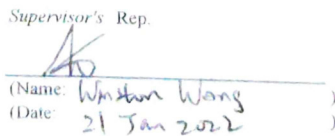 Supervisor's Rep.
(Name: Winston Wang )
(Date: 21 Jan 2022